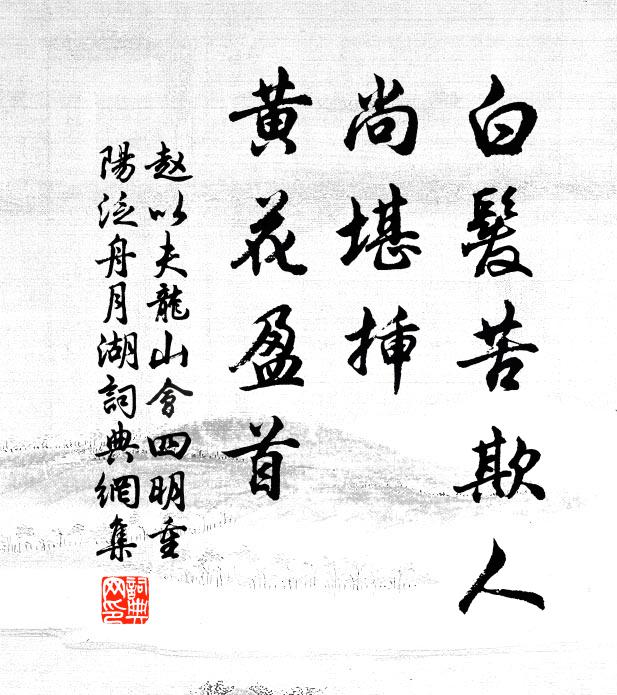 白髮苦欺人
尚堪插
黃花盈首
赵以夫龍山會四明重
陽泛舟月湖詞典網集
詞典
网印